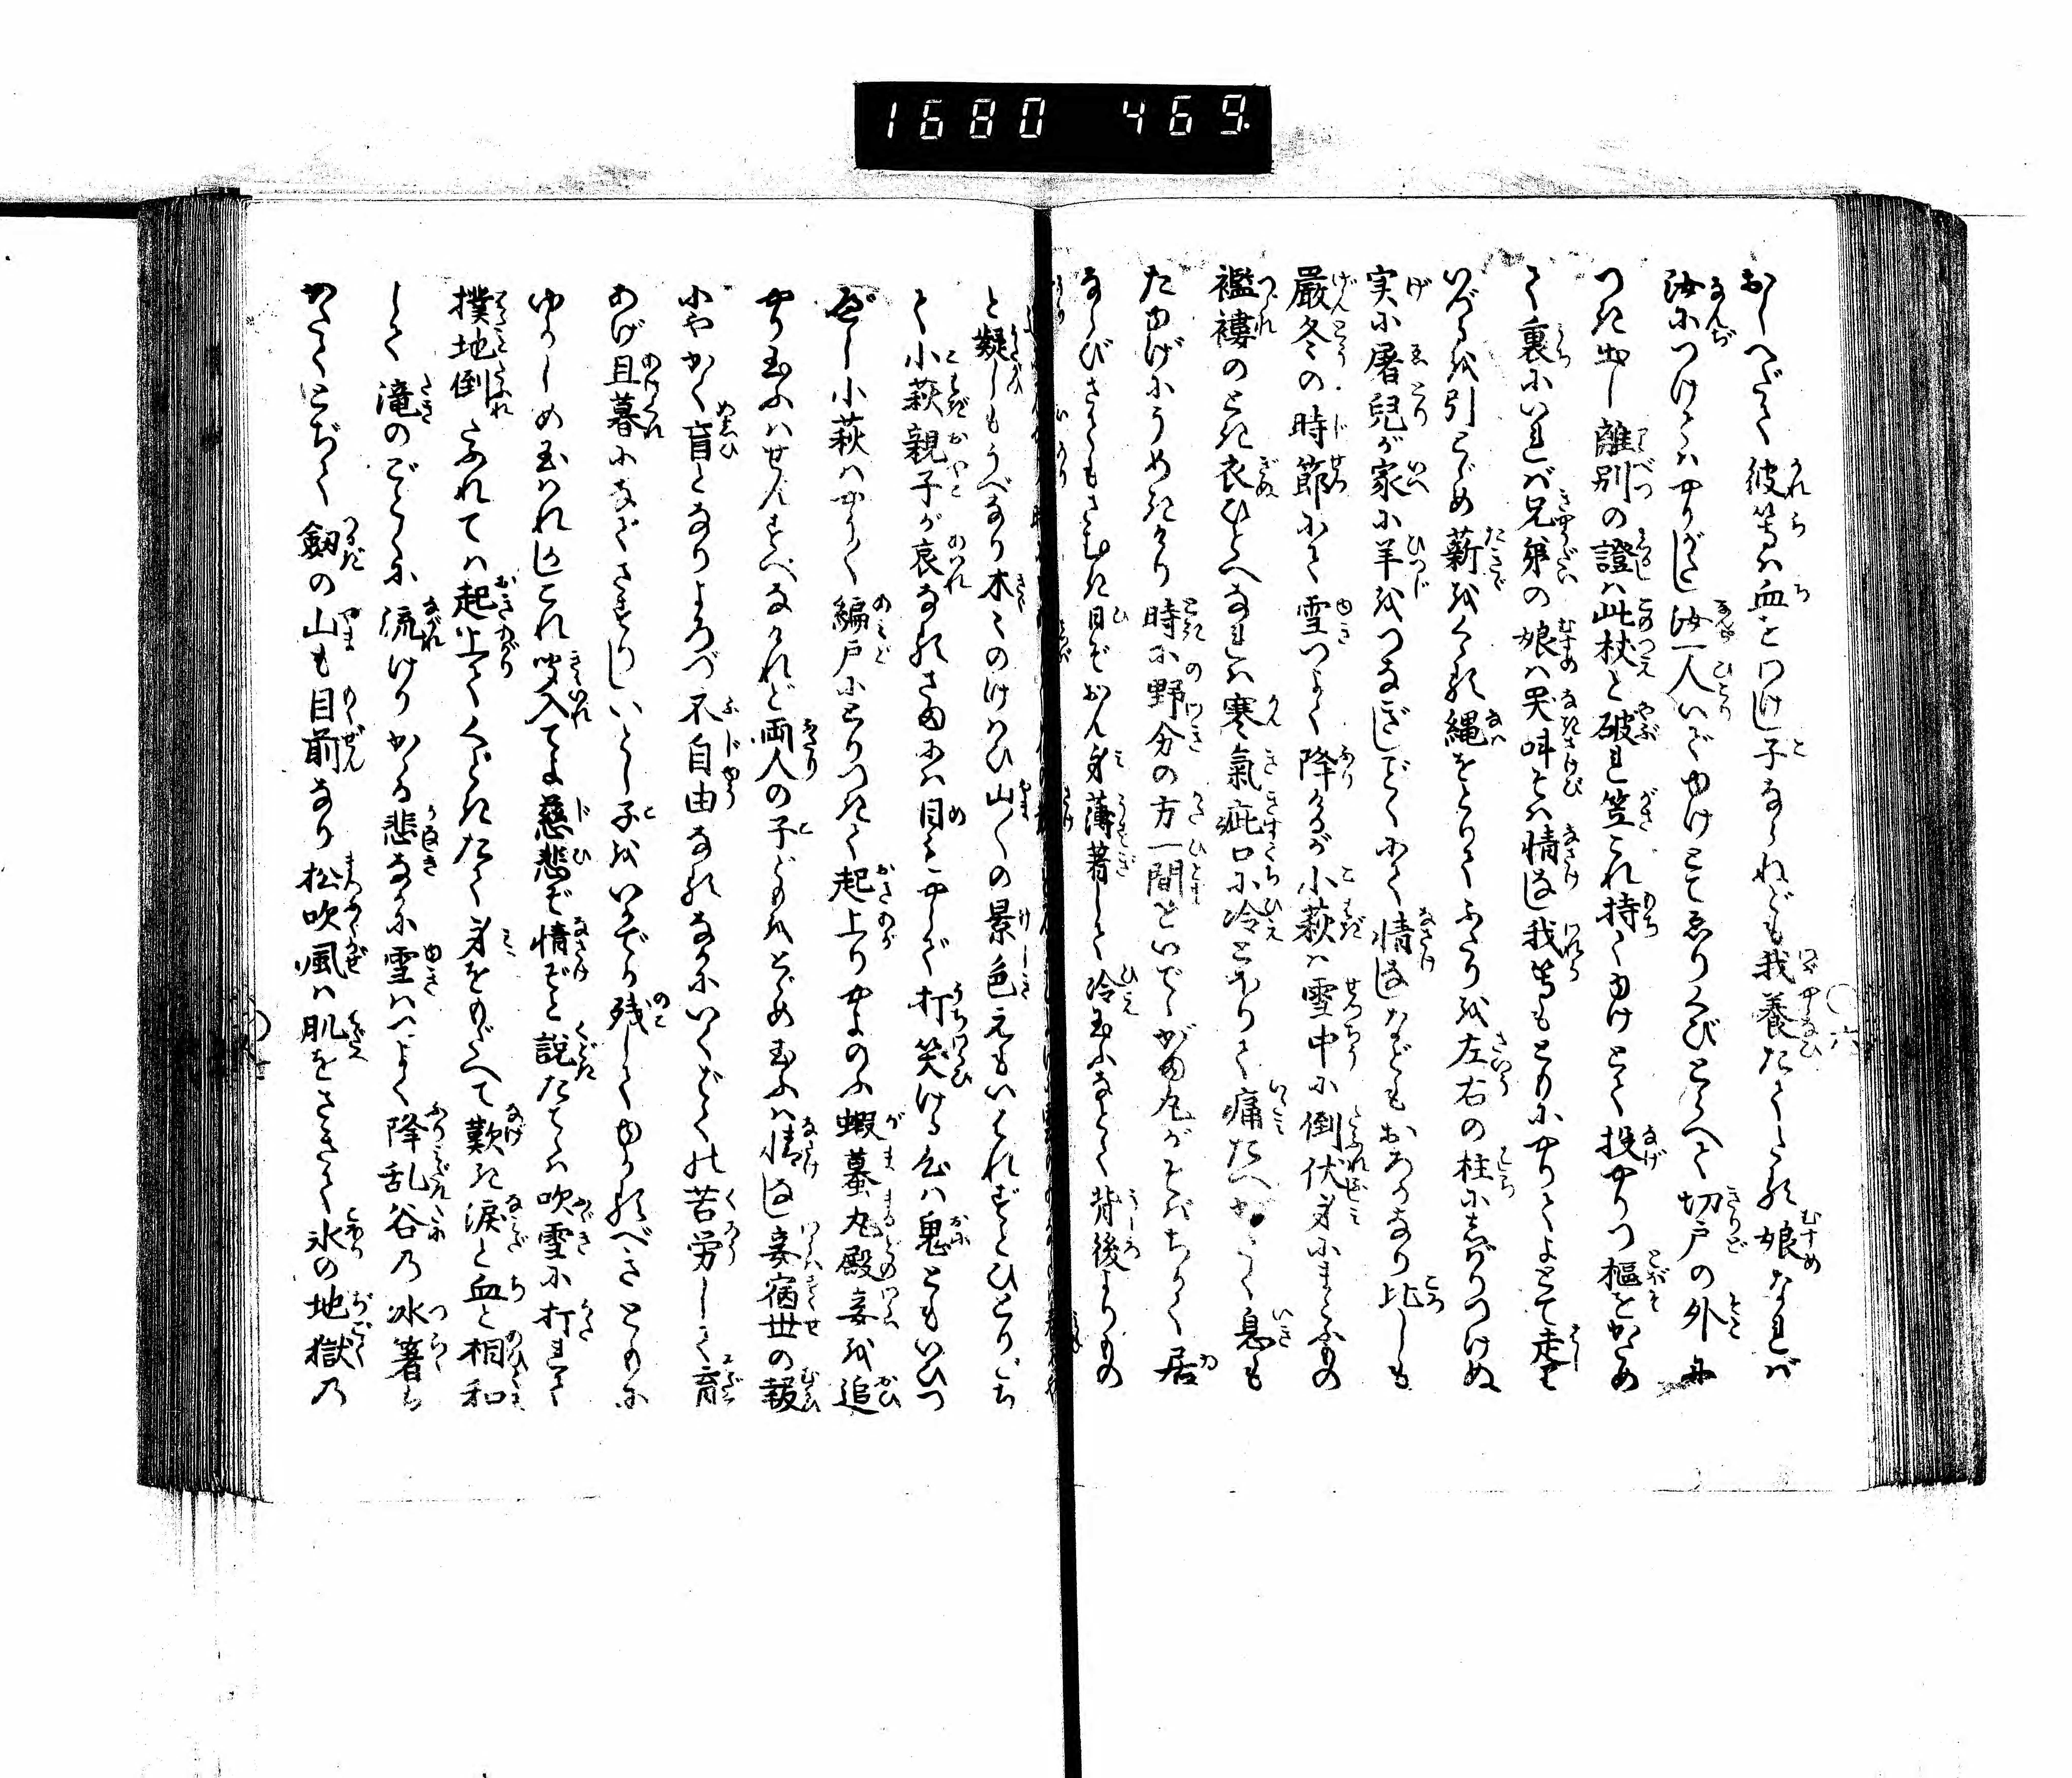 1680 469
おしへだてく彼等は血をわけし子ならねども我養たてたる娘なれば
汝につけてはやりがたし汝一人いでゆけとてゑりくびとらへて切戸の外に
つき出し離別の證は此杖と破れ笠これ持てゆけとて投やりつ樞をかため
て裏にいれば兄弟の娘は哭叫とは情なし我等もともにやりてよとて走
いづるを引とゞめ薪をくゝる縄をとりてふたりを左右の柱にしばりつけぬ
実に屠兒が家に羊をつなぎしごとくにて情なしなどもおろかなり比しも
嚴冬の時節にて雪つよく降けるが小萩は雪中に倒伏身にまとふもの
襤褸のとき衣ひとへなれば寒氣疵口に冷とほりて痛たへがたく息も
たゆげにうめきけり時に野分の方一間をいでゝがま丸がそばちかく居
ならびさてもさむき日ぞかん身薄着して冷玉ふなとて背後よりもの
と疑しもうべなり木〻のけはひ山〻の景色えもいはれずとひとりごち
て小萩親子が哀なるさまには目もやらず打笑ける心は鬼ともいひつ
べし小萩はやうやく編戸にとりつきて起上りやよのふ蝦蟇丸殿妾を追
やり玉ふはせんすべなけれど両人の子どもをとゞめ玉ふは情なし妾宿世の報
にやかく盲となりよろづ不自由なるなかにいくばくの苦労して育
あげ旦暮になでさすりしいとし子をいかでか残してゆかるべきともに
ゆかしめ玉はれしこれ聞入てよ慈悲ぞ情ぞと説たつれば吹雪に打れて
撲地倒ふれては起上てくどきたて身をもだへて歎き涙と血と相和
して滝のごとくに流けりかゝる悲なかに雪はつよく降乱谷の氷箸も
かたくとぢて劔の山も目前なり松吹風は肌をさきて氷の地獄の